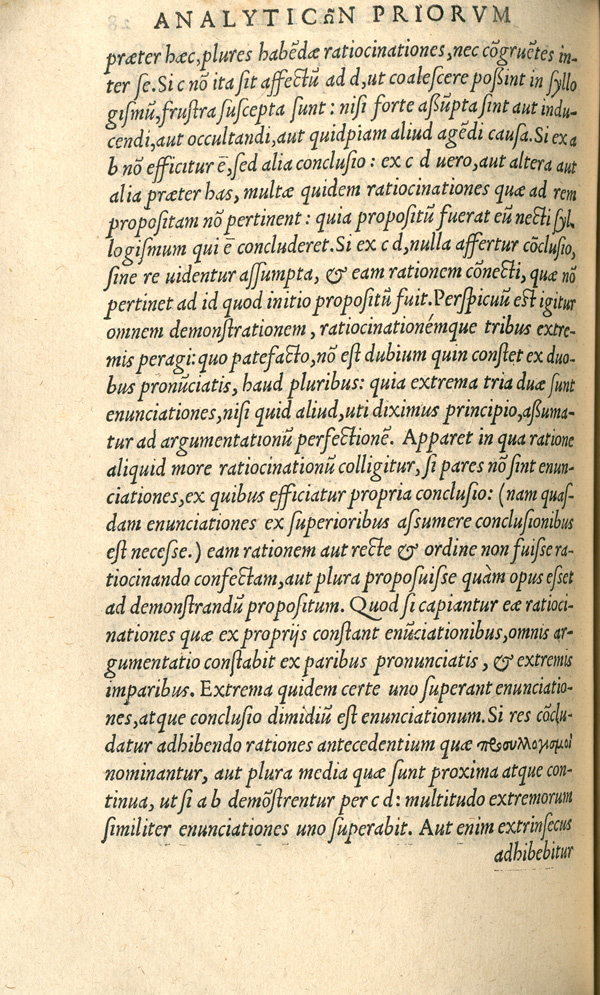 ANALYTICΩN PRIORVM
præter hæc, plures habēdæ ratiocinationes, nec cōgruētes in-
ter se. Si c nō ita sit affectū ad d, ut coalescere poßint in syllo
gismū, frustra suscepta sunt: nisi forte aßūpta sint aut indu-
cendi, aut occultandi, aut quidpiam aliud agēdi causa. Si ex a
b nō efficitur ē, sed alia conclusio: ex c d uero, aut altera aut
alia præter has, multæ quidem ratiocinationes quæ ad rem
propositam nō pertinent: quia propositū fuerat eū necti syl
logismum qui ē concluderet. Si ex c d, nulla affertur cōclusio,
sine re uidentur assumpta, & eam rationem cōnecti, quæ nō
pertinet ad id quod initio propositū fuit. Perspicuū est igitur
omnem demonstrationem, ratiocinationémque tribus extre-
mis peragi: quo patefacto, nō est dubium quin constet ex duo-
bus pronūciatis, haud pluribus: quia extrema tria duæ sunt
enunciationes, nisi quid aliud, uti diximus principio, aßuma-
tur ad argumentationū perfectionē. Apparet in qua ratione
aliquid more ratiocinationū colligitur, si pares nō sint enun-
ciationes, ex quibus efficiatur propria conclusio: (nam quas-
dam enunciationes ex superioribus assumere conclusionibus
est necesse.) eam rationem aut recte & ordine non fuisse ra-
tiocinando confectam, aut plura proposuisse quàm opus esset
ad demonstrandū propositum. Quod si capiantur eæ ratioci-
nationes quæ ex proprijs constant enūciationibus, omnis ar-
gumentatio constabit ex paribus pronunciatis, & extremis
imparibus. Extrema quidem certe uno superant enunciatio-
nes, atque conclusio dimidiū est enunciationum. Si res cōclu-
datur adhibendo rationes antecedentium quæ προσυλλογισμοὶ
nominantur, aut plura media quæ sunt proxima atque con-
tinua, ut si a b demōstrentur per c d: multitudo extremorum
similiter enunciationes uno superabit. Aut enim extrinsecus
adhibebitur